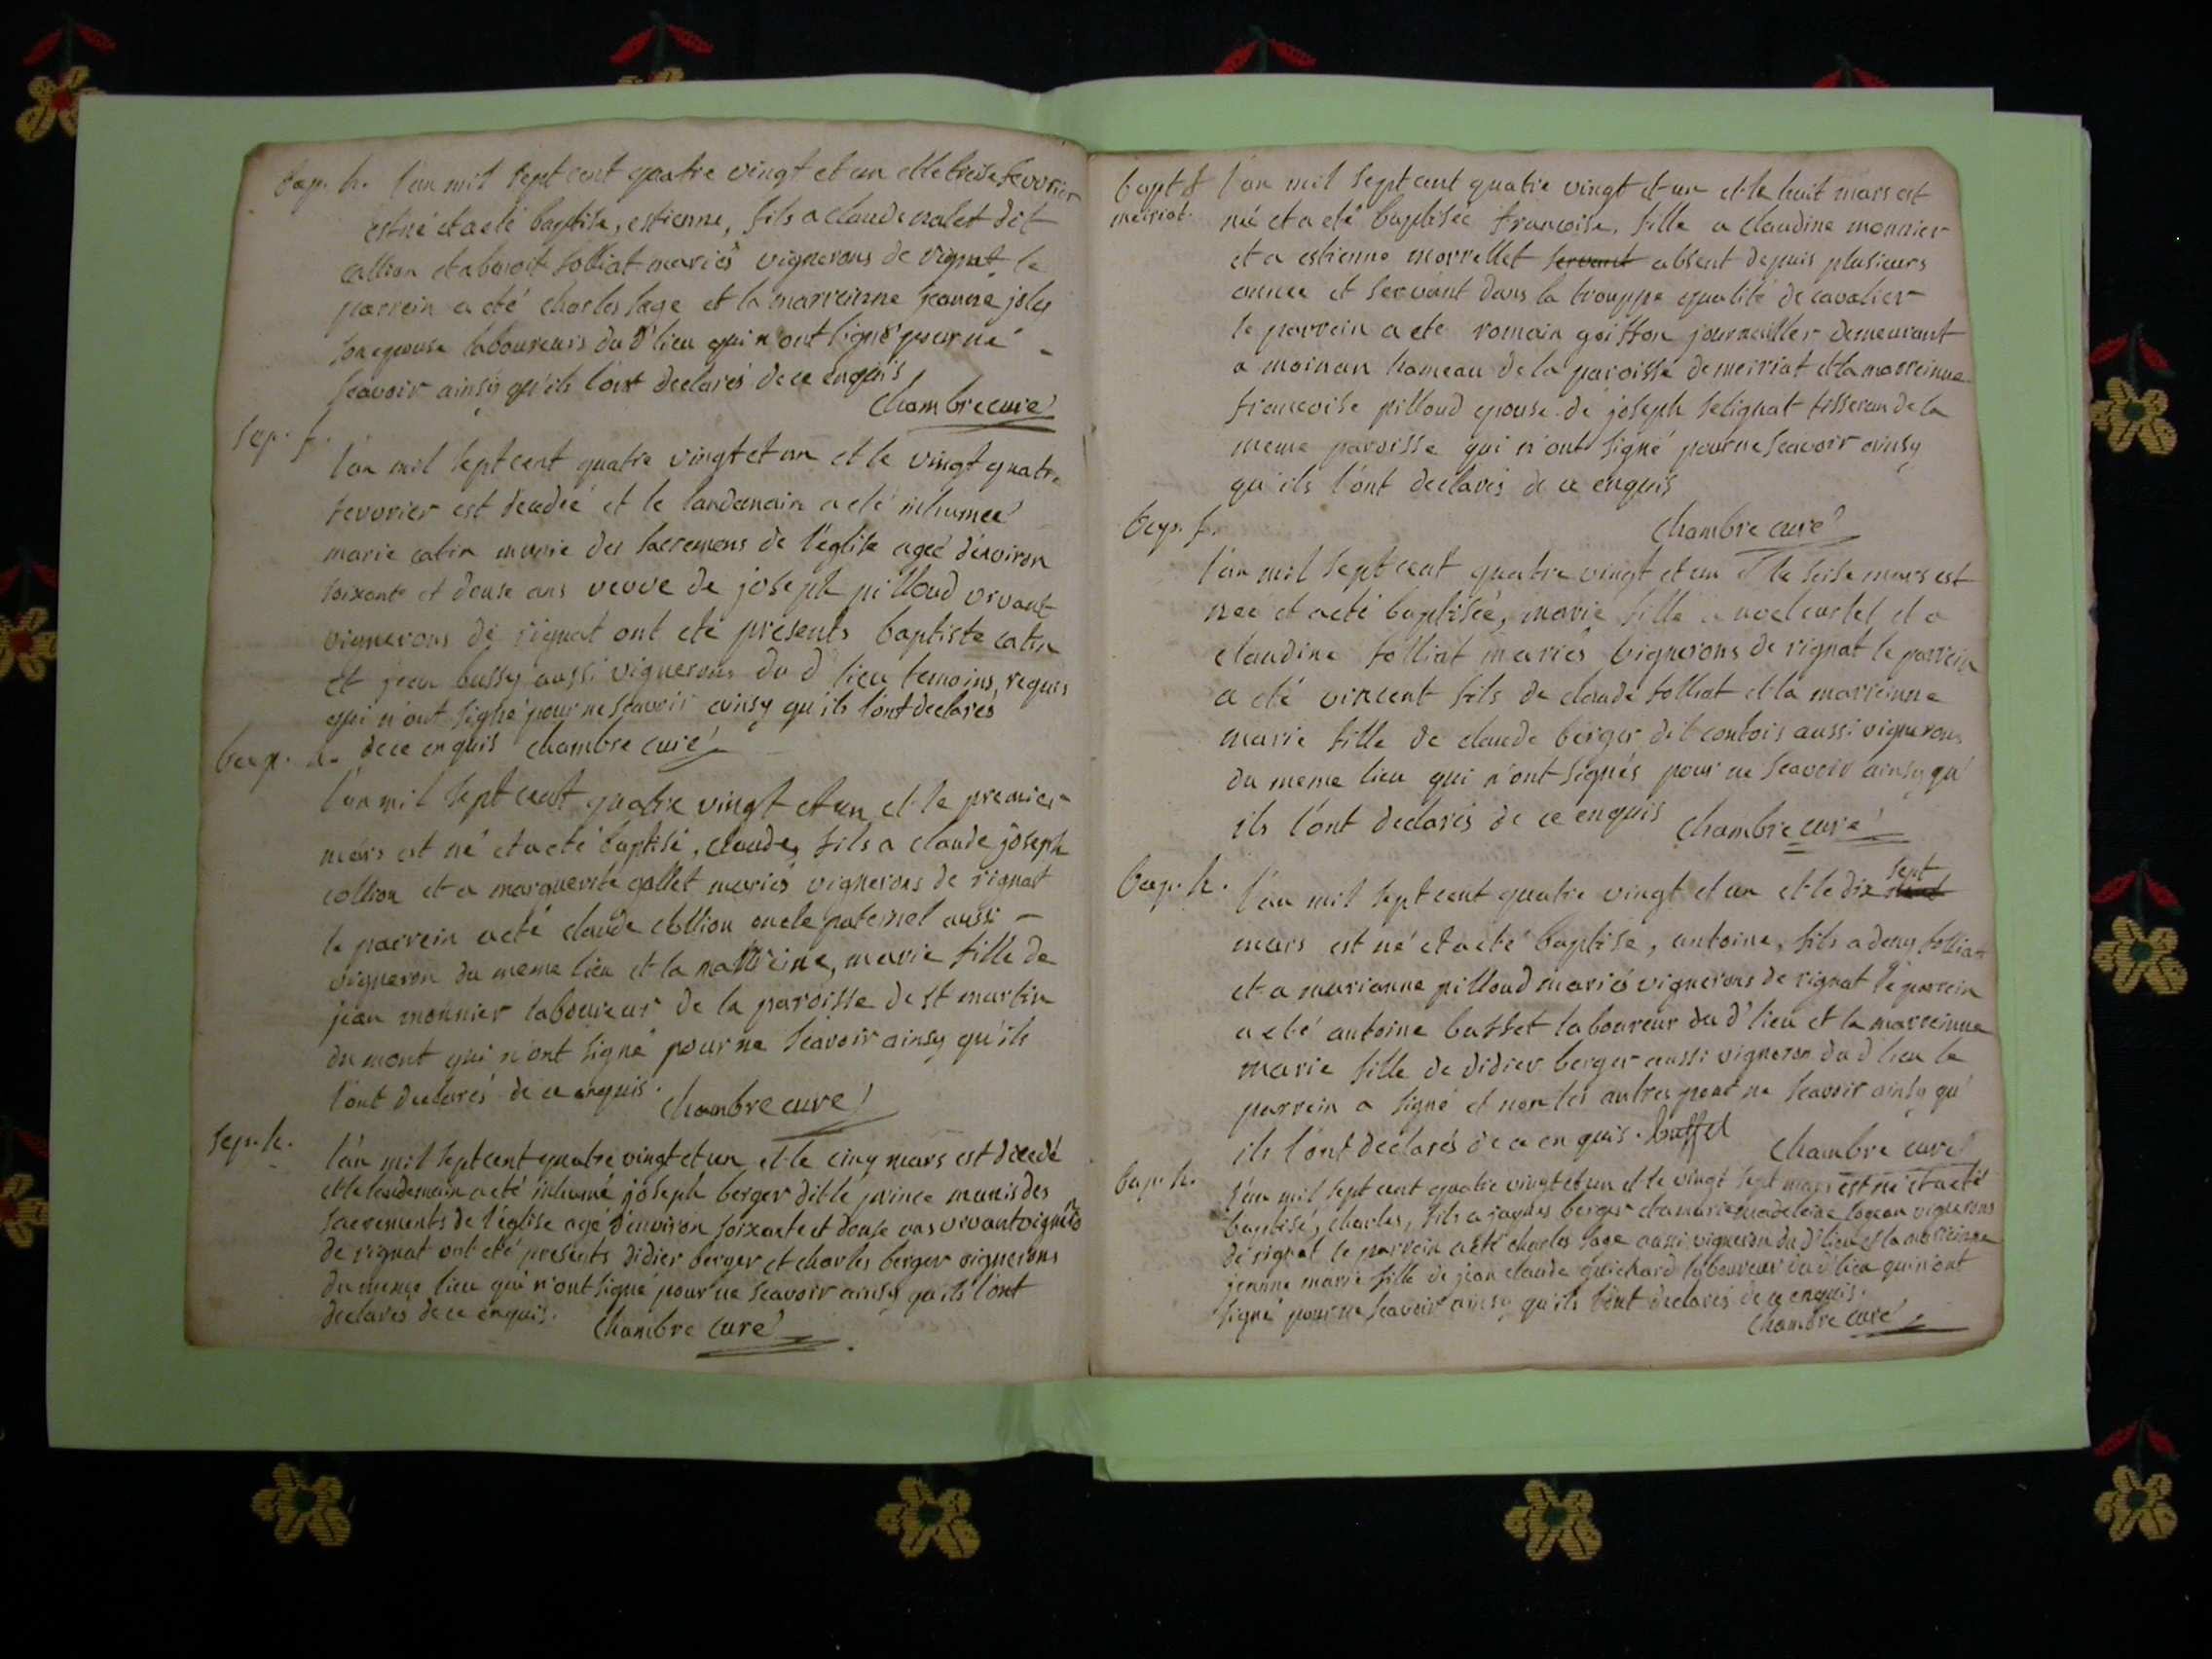 bap. h. l'an mil sept cent quatre vingt et un et le treize fevvrier
est né et a eté baptise, estienne, fils a claude nalet dit
collion et a benoit folliat mariés vignerons de rignat le
parrein a eté charles sage et la marreinne jeanne joly
son epouse laboureurs du d' lieu qui n'ont signé pour ne
scavoir ainsy qu'ils l'ont declarés de ce enquis
chambre curé
sep. f.
l'an mil sept cent quatre vingt et un et le vingt quatre
fevvrier est decedée et le landemain a eté inhumée
marie catin munie des sacremens de l'église ageé d'environ
soixante et douse ans veuve de joseph pilloud vivant
vignerons de rignat ont eté présents baptiste catin
et jean bussy aussi vignerons du d lieu temoins requis
qui n'ont signé pour ne scavoir ainsy qu'ils l'ont declarés
bap. h. de ce enquis chambre curé
l'an mil sept cent quatre vingt et un et le premier
mars est né et a eté baptisé, claude, fils a claude joseph
collion et a marguerite gallet mariés vignerons de rignat
le parrein a eté claude collion oncle paternel aussi
vigneron du meme lieu et la marreine, marie fille de
jean monnier laboureur de la paroisse de st martin
du mont qui n'ont signé pour ne scavoir ainsy qu'ils
l'ont declarés de ce enquis. chambre curé
sep. h.
l'an mil sept cent quatre vingt et un et le cinq mars est decedé
et le landemain a eté inhumé joseph berger dit le prince munis des
sacrements de l'église agé d'environ soixante et douse ans vivant vigneron
de rignat ont eté presents didier berger et charles berger vignerons
du meme lieu qui n'ont signé pour ne scavoir ainsy qu'ils l'ont
declarés de ce enquis. chambre curé
bapt f l'an mil sept cent quatre vingt et un et le huit mars est
meiriat. né et a eté baptisée francoise, fille a claudine monnier
et a estienne morrellet servant absent depuis plusieurs
année et servant dans la trouppe qualité de cavalier
le parrein a eté romain goiffon journallier demeurant
a moinan hameau de la paroisse de meiriat et la marreinne
francoise pilloud epouse de joseph selignat tisseran de la
meme paroisse qui n'ont signé pour ne scavoir ainsy
qu'ils l'ont declarés de ce enquis
chambre curé
bap. f.
l'an mil sept cent quatre vingt et un et le seise mars est
née et a eté baptisée, marie fille a et a
claudine folliat mariés vignerons de rignat le parrein
a eté vincent fils de claude folliat et la marreinne
marie fille de claude berger dit contois aussi vignerons
du meme lieu qui n'ont signés pour ne scavoir ainsy qu'
ils l'ont declarés de ce enquis chambre curé
sept
bap. h. l'an mil sept cent quatre vingt et un et le dix
mars est né et a eté baptise, antoine, fils a deny folliat
et a marianne pilloud mariés vignerons de rignat le parrein
a eté antoine buffet laboureur du d' lieu et la marreinne
marie fille de didier berger aussi vigneron du d lieu le
parrein a signé et non les autres pour ne scavoir ainsy qu'
ils l'ont declarés de ce enquis. buffet chambre curé
bap. h.
l'an mil sept cent quatre vingt et un et le vingt sept mars est né et a eté
baptisé, charles, fils a jaques berger et a marie madeleine vignerons
de rignat le parrein a eté charles sage aussi vigneron du d' lieu et la marreinne
jeanne marie fille de jean claude guichard laboureur du d' lieu qui n'ont
signé pour ne scavoir ainsy qu'ils l'ont declarés de ce enquis.
chambre curé